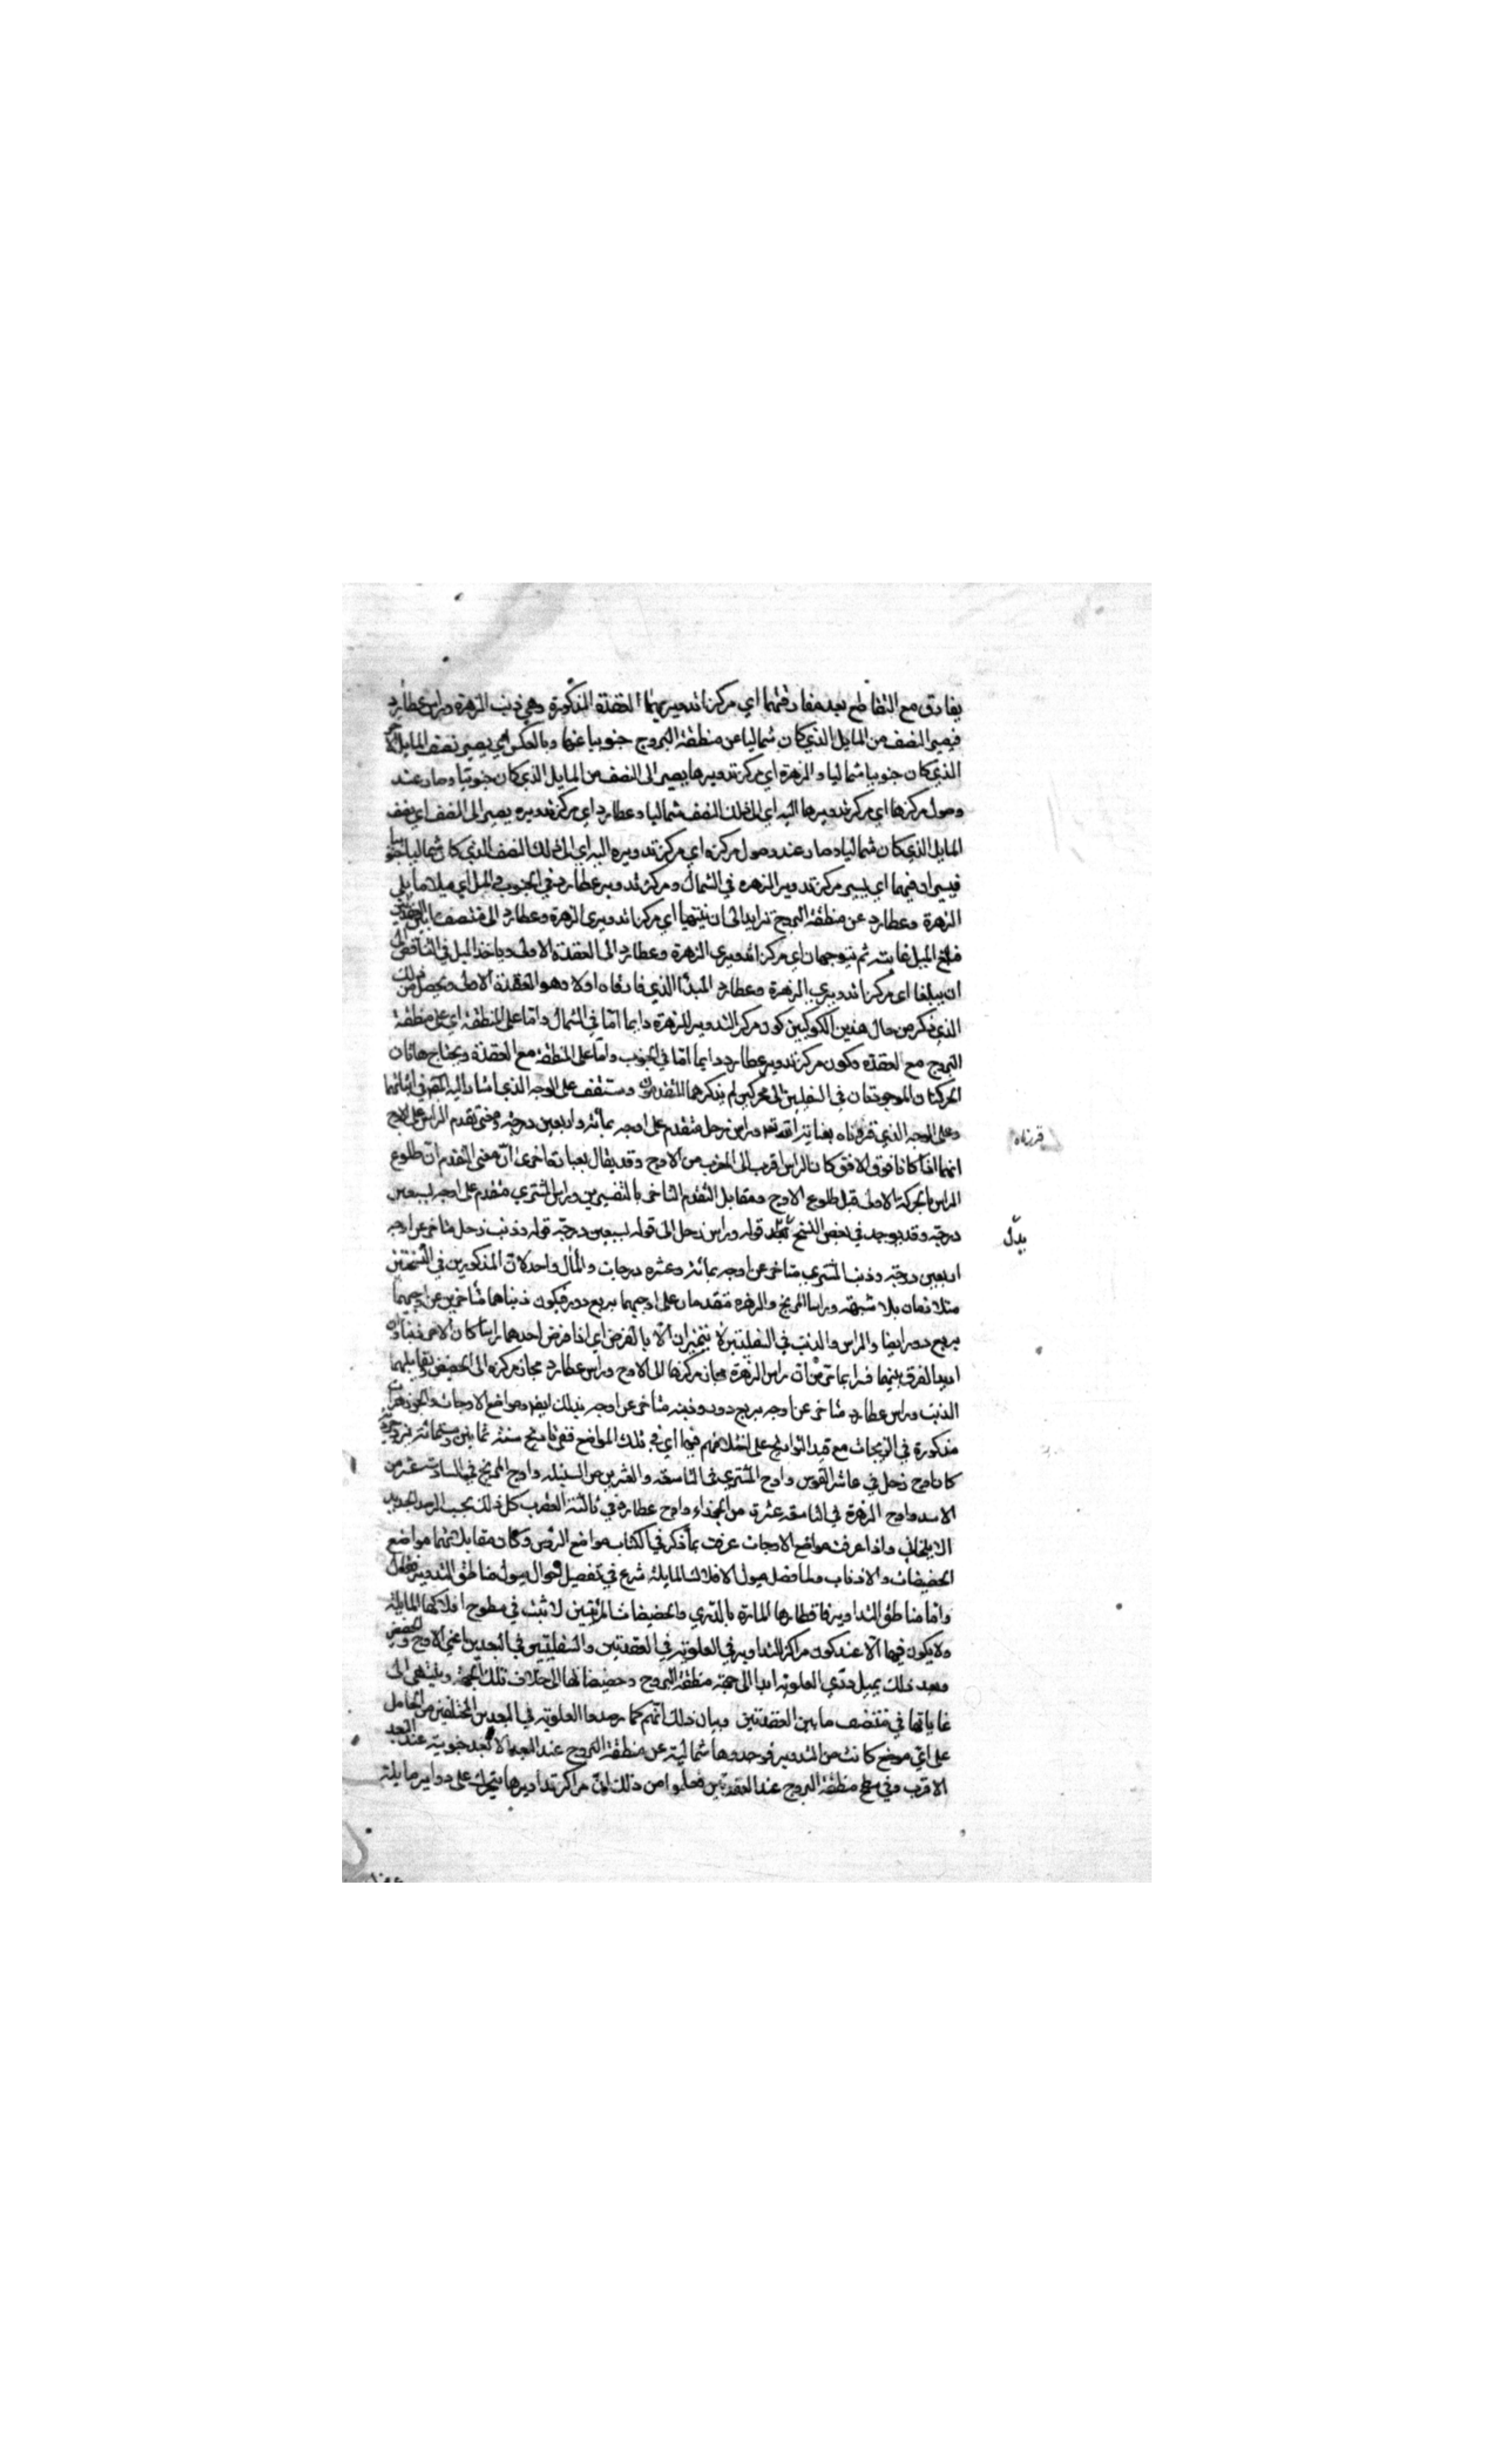 يفارق مع التقاطع بعد مفارقتهما اي مركزا تدويريهما العقدة المذكورة وهي ذنب الزهرة وراس عطارد
فيصير النصف من المايل الذي كان شماليا عن منطقة البروج جنوبيا عنها وبالعكس اي يصير نصف المايل الاخر
الذي كان جنوبيا شماليا والزهرة اي مركز تدويرها يصير الى النصف من المايل الذي كان جنوبيا وصار عند
وصول مركزها اي مركز تدويرها اليه اي الى ذلك النصف شماليا وعطارد اي مركز تدويره يصير الى النصف اي نصف
المايل الذي كان شماليا وصار عند وصول مركزه اي مركز تدويره اليه اي الى ذلك النصف الذي كان شماليا جنوبيا
فيسيران فيهما اي يسير مركز تدوير الزهره في الشمال ومركز تدوير عطارد في الجنوب والميل اي ميلا مايلي
الزهرة وعطارد عن منطقة البروج تزايد الى ان ينتهيا اي مركزا تدويري الزهرة وعطارد الى منتصف ما بين العقدتين
فبلغ الميل غايته ثم يتوجهان اي مركزا تدويري الزهرة وعطارد الى العقدة الاولى وياخذ الميل في التناقص الى
ان يبلغا اي مركزا تدويري الزهرة وعطارد المبدأ الذي فارقاه اولا وهو العقدة الاولى ويحصل من ذلك
الذي ذكر من حال هذين الكوكبين كون مركز التدوير للزهرة دايما امّا في الشمال وامّا على المنطقة اي على منطقة
البروج مع العقدة وكون مركز تدوير عطارد دايما امّا في الجنوب وامّا على المنطقة مع العقدة ويحتاج هاتان
الحركتان الموجودتان في السفليين الى محركين لم يذكرهما المتقدمون وستقف على الوجه الذي اشار اليه المص في اثباتهما
وعلى الوجه الذي قررناه بعناية الله تعه وراس زحل متقدم على اوجه بمائة واربعين درجة ومعنى تقدم الراس على الاوج
انهما اذا كانا فوق الافق كان الراس اقرب الى المغرب من الاوج وقد يقال بعبارة اخرى انّ معنى التقدم انّ طلوع
الراس بالحركة الاولى قبل طلوع الاوج ومقابل التقدم التاخر بالتفسيرين وراس المشتري متقدم على اوجه بسبعين
درجة وقد يوجد في بعض النسخ بدل قوله وراس زحل الى قوله بسبعين درجة قوله وذنب زحل متاخر عن اوجه
اربعين درجة وذنب المشتري متاخر عن اوجه بمائة وعشره درجات والمآل واحد لانّ المذكورين في النسختين
متلازمان بلا شبهة وراسا المريخ والزهره متقدمان على اوجيهما بربع دور فيكون ذنباهما متاخرين عن اوجيهما
بربع دور ايضا والراس والذنب في السفليين لا يتميزان الا بالفرض اي اذا فرض احدهما راسا كان الاخر ذنبا وان
اريد الفرق بينهما فبما من انّ راس الزهرة مجاز مركزها الى الاوج وراس عطارد مجاز مركزه الى الحضيض ويقابلهما
الذنب وراس عطارد متاخر عن اوجه بربع دور وذنبه متاخر عن اوجه بذلك ايضا ومواضع الاوجات والجوزهرات
مذكورة في الزيجات مع قيد التواريخ على اختلافهم فيها اي في تلك المواضع ففي تاريخ سنة ثمانين وستمائة يزدجردية
كان اوج زحل في عاشر القوس واوج المشتري في التاسعة والعشرين من السنبله واوج المريخ في السادسة عشر من
الاسد واوج الزهرة في التاسعة عشرة من الجوزاء واوج عطارد في ثالثة العقرب كل ذلك بحسب الرصد الجديد
الايلخاني واذا عرفت مواضع الاوجات عرفت بما ذكر في الكتاب مواضع الرؤس وكان مقابلاتهما مواضع
الحضيضات والاذناب ولما فصل ميول الافلاك المايلة شرع في تفصيل احوال ميول مناطق التدوير فقال
وامّا مناطق التداوير فاقطارها المارة بالذري والحضيضات المرئيتين لا تثبت في سطوح افلاكها المايلة
ولا يكون فيها الا عند كون مراكز التداوير في العلوية في العقدتين والسفليين في البعدين اعني الاوج والحضيض
وبعد ذلك يميل ذري العلوية ابدا الى جهة منطقة البروج وحضيضاتها الى خلاف تلك الجهة وينتهي الى
غاياتها في منتصف ما بين العقدتين وبيان ذلك انهم لما رصدوا العلوية في البعدين المختلفين من الحامل
على ايّ موضع كانت من التدوير فوجدوها شمالية عن منطقة البروج عند البعد الابعد جنوبية عند البعد
الاقرب وفي سطح منطقة البروج عند العقدتين فعلموا من ذلك انّ مراكز تداويرها يتحرك على دواير مايلة
قررناه
بدّل